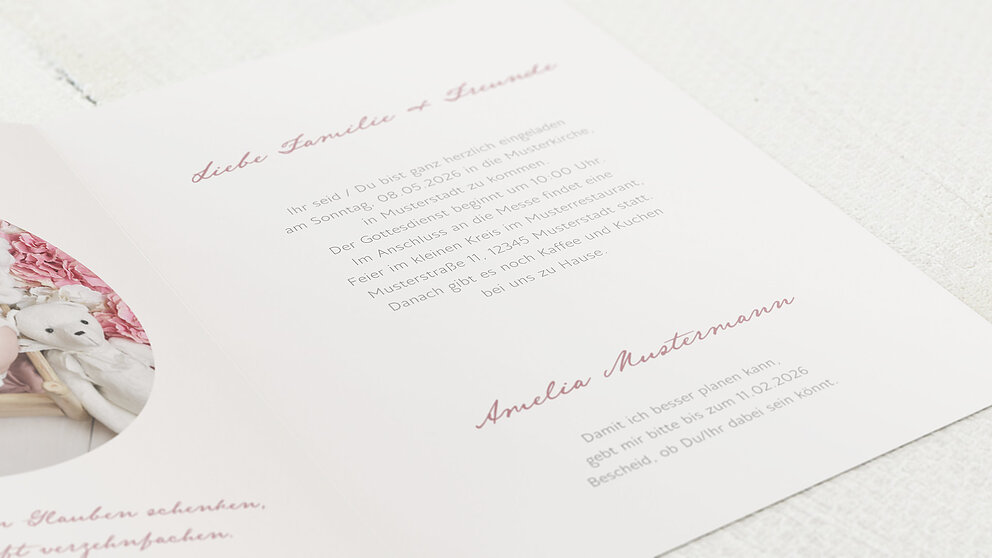 Liebe Familie + Freunde
Ihr seid / Du bist ganz herzlich eingeladen
am Sonntag, 08.05.2026 in die Musterkirche,
in Musterstadt zu kommen.
Der Gottesdienst beginnt um 10:00 Uhr.
Im Anschluss an die Messe findet eine
Feier im kleinen Kreis im Musterrestaurant,
Musterstraße 11, 12345 Musterstadt statt.
Danach gibt es noch Kaffee und Kuchen
bei uns zu Hause.
Amelia Mustermann
Damit ich besser planen kann,
gebt mir bitte bis zum 11.02.2026
Bescheid, ob Du/Ihr dabei sein könnt.
Glauben schenken,
verzehnfachen.